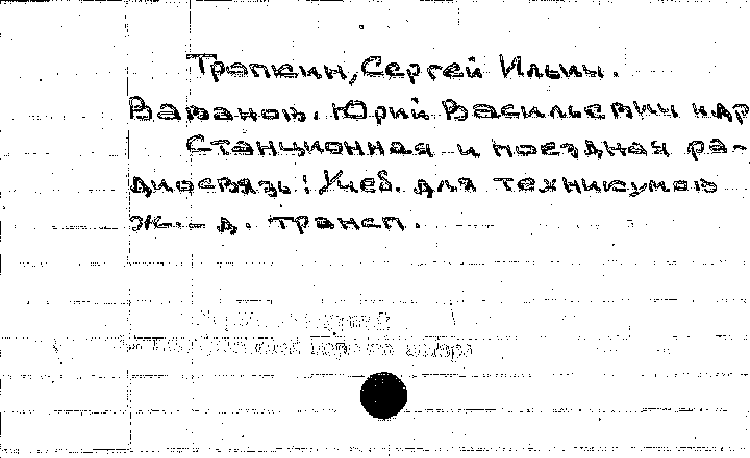 Тропкин, Сергей Ильич.
Ваванов, Юрий Васильевич и др
Станционная и поездная ра-
диосвязь: Учеб. для техникумов
ж.-д. трансп.